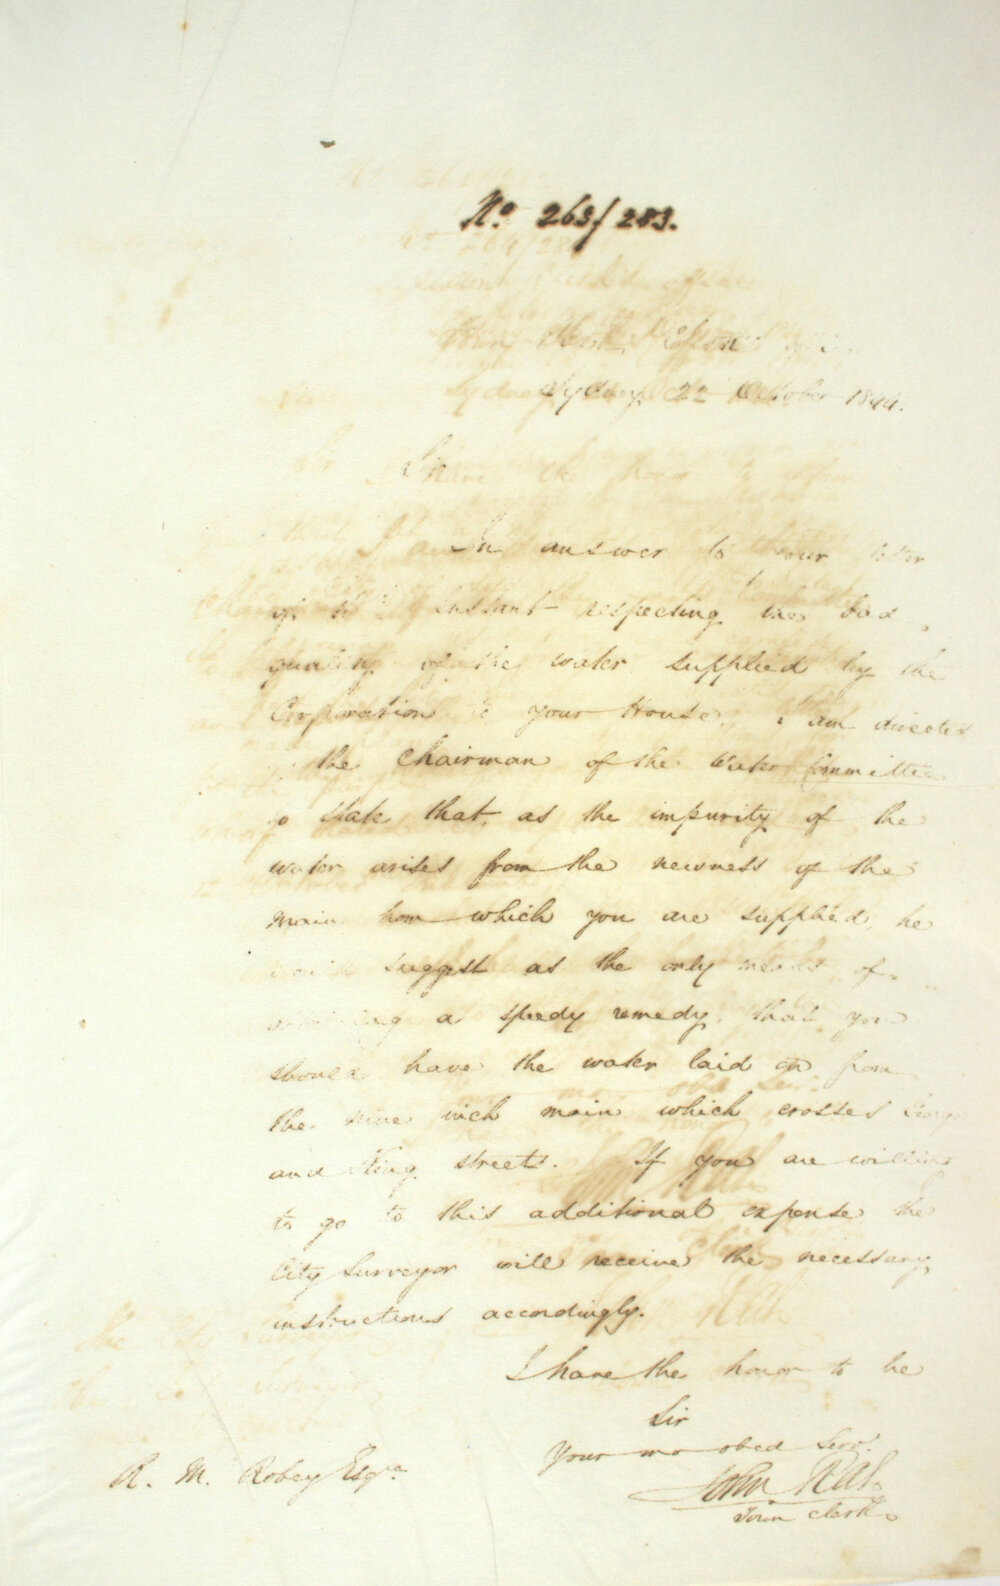 No. 263/283.
Town Clerk's Office
Sydney 22 October 1844.
Sir
In answer to your letter
of the instant respecting the bad
quality of the water supplied by the
Corporation to your House, I am directed
the Chairman of the Water Committee
to state that, as the impurity of the
water arises from the newness of the
main from which you are supplied, he
would suggest as the only means of
a speedy remedy, that you
should have the water laid on from
the nine inch main which crosses George
and King streets. If you are willing
to go to this additional expense the
City Surveyor will receive the necessary
instructions accordingly.
I have the honor to be
Sir
Your mo obed Serv.
John Rae
Town Clerk.
R. M. Robey Esqre